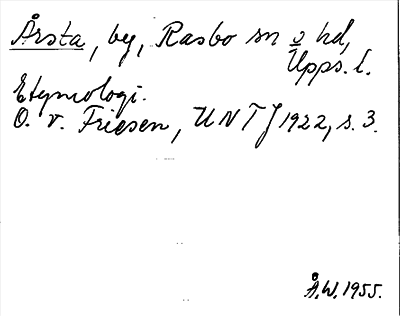 Årsta, by, Rasbo sn o hd,
Upps. l.
Etymologi.
O. v. Friesen, UNTJ 1922, s. 3.
Å.W. 1955.